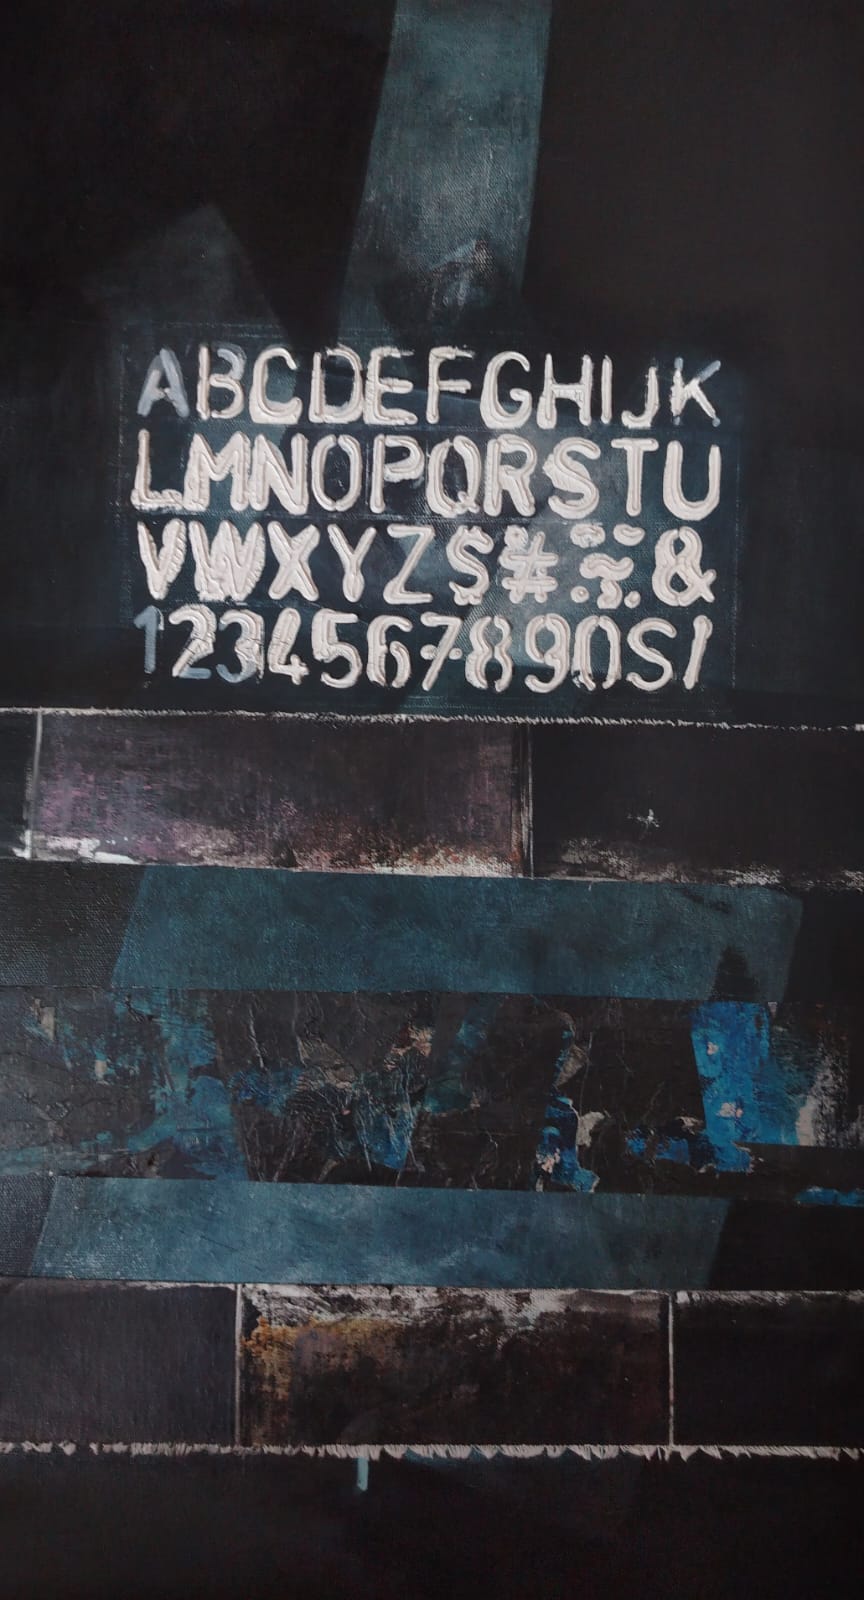 ABCDEFGHIJK
LMNOPQRSTU
VWXYZ$%&
1234567890S/